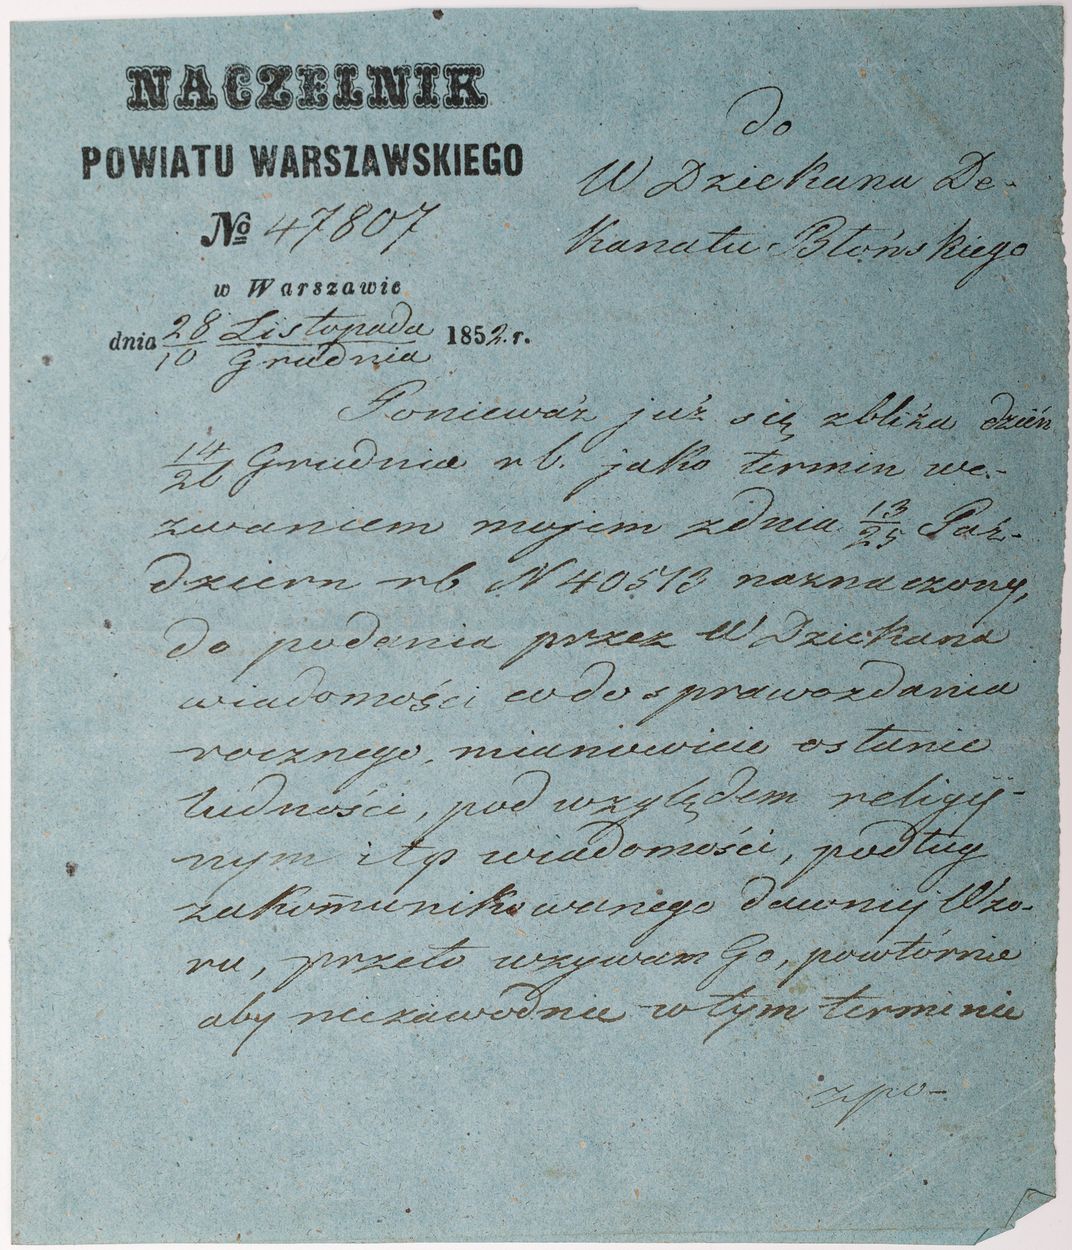 NACZELNIK
POWIATU WARSZAWSKIEGO
№ 47807
w Warszawie
dnia 28/10 Listopada/Grudnia 1852. r.
do
W Dziekana De-
kanatu Błońskiego
Ponieważ już się zbliża dzień
14/26 Grudnia r b. jako termin we-
zwaniem mojem z dnia 13/25 Paź-
dziern rb N 40513 naznaczony,
do podania przez W Dziekana
wiadomości co do sprawozdania
rocznego, mianowicie o stanie
ludności, pod względem religij-
nym i t p wiadomości, podług
zakom̄unikowanego dawniej Wzo-
ru, przeto wzywam Go, powtórnie
aby niezawodnie w tym terminie
z po-